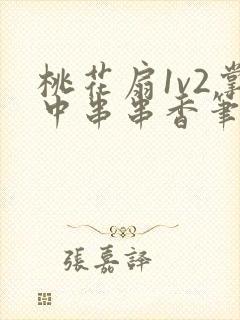 桃花扇1v2掌
中串串香笔
張嘉譯